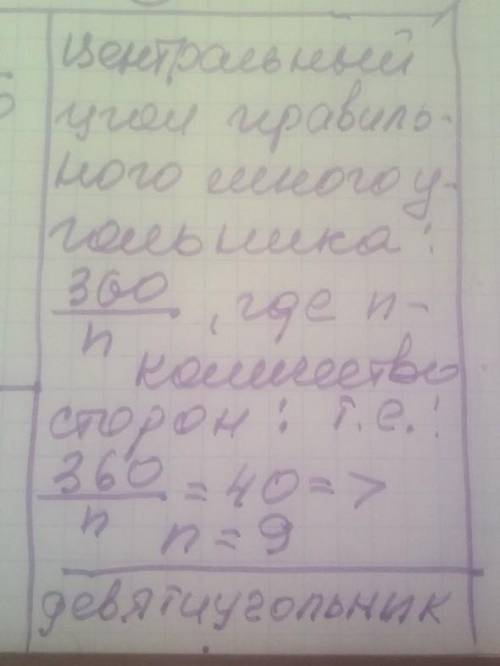 Центральный
угол правиль-
ного многоу-
гольника:
360/n, где n-
количество
сторон: т.е.:
360/n = 40 =>
n = 9
девятиугольник